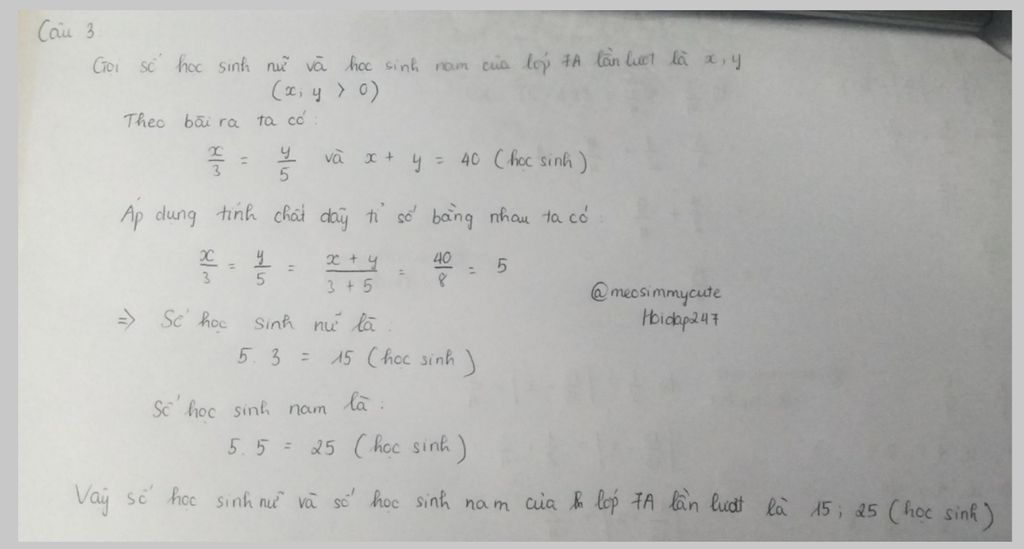 Câu 3
Gọi số học sinh nữ và học sinh nam của lớp 7A lần lượt là x, y
(x; y > 0)
Theo bài ra ta có:
x/3 = y/5 và x + y = 40 (học sinh)
Áp dụng tính chất dãy tỉ số bằng nhau ta có:
x/3 = y/5 = (x + y)/(3 + 5) = 40/8 = 5
@mecsimmycute
Hoidap247
=> Số học sinh nữ là:
5. 3 = 15 (học sinh)
Số học sinh nam là:
5. 5 = 25 (học sinh)
Vậy số học sinh nữ và số học sinh nam của lớp 7A lần lượt là 15; 25 (học sinh)